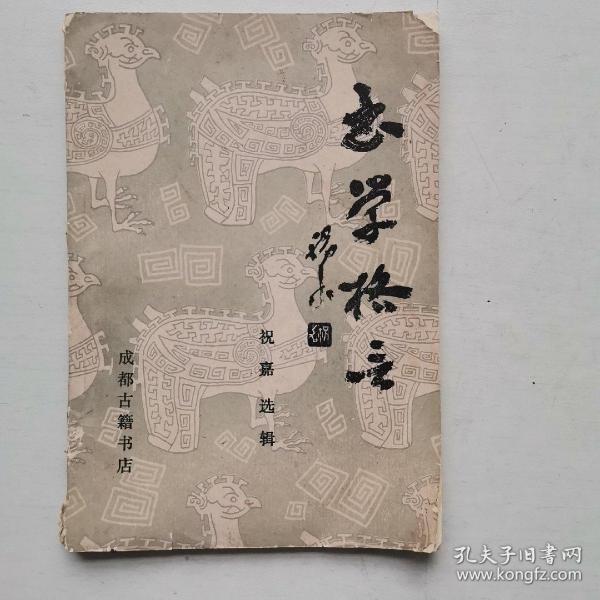 书学格言
祝嘉选辑
成都古籍书店
孔夫子旧書网
www.kongfz.com